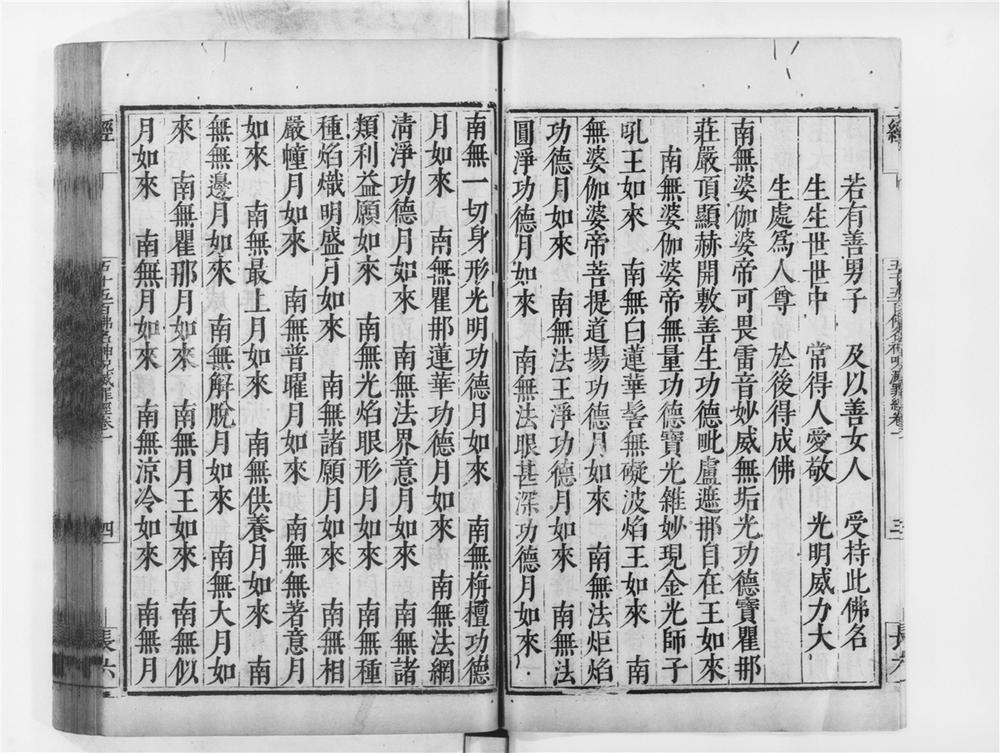 若有善男子　及以善女人　受持此佛名
生生世世中　常得人愛敬　光明威力大
生處爲人尊　於後得成佛
南無婆伽婆帝可畏雷音妙威無垢光功德寶瞿那
莊嚴頂顯赫開敷善生功德毗盧遮那自在王如來
南無婆伽婆帝無量功德寶光雜妙現金光師子
吼王如來　南無白蓮華髻無礙波焰王如來　南
無婆伽婆帝菩提道場功德月如來　南無法炬焰
功德月如來　南無法王淨功德月如來　南無法
圓淨功德月如來　南無法眼甚深功德月如來
南無一切身形光明功德月如來　南無栴檀功德
月如來　南無瞿那蓮華功德月如來　南無法網
清淨功德月如來　南無法界意月如來　南無諸
類利益願如來　南無光焰眼形月如來　南無種
種焰熾明盛月如來　南無諸願月如來　南無相
嚴幢月如來　南無普曜月如來　南無無著意月
如來　南無最上月如來　南無供養月如來　南
無無邊月如來　南無解脫月如來　南無大月如
來　南無瞿那月如來　南無月王如來　南無似
月如來　南無月如來　南無涼冷如來　南無月
經
五千五百佛名神呪滅罪經卷一
四
長六